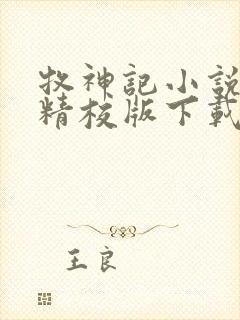 牧神記小說
精校版下載
王良